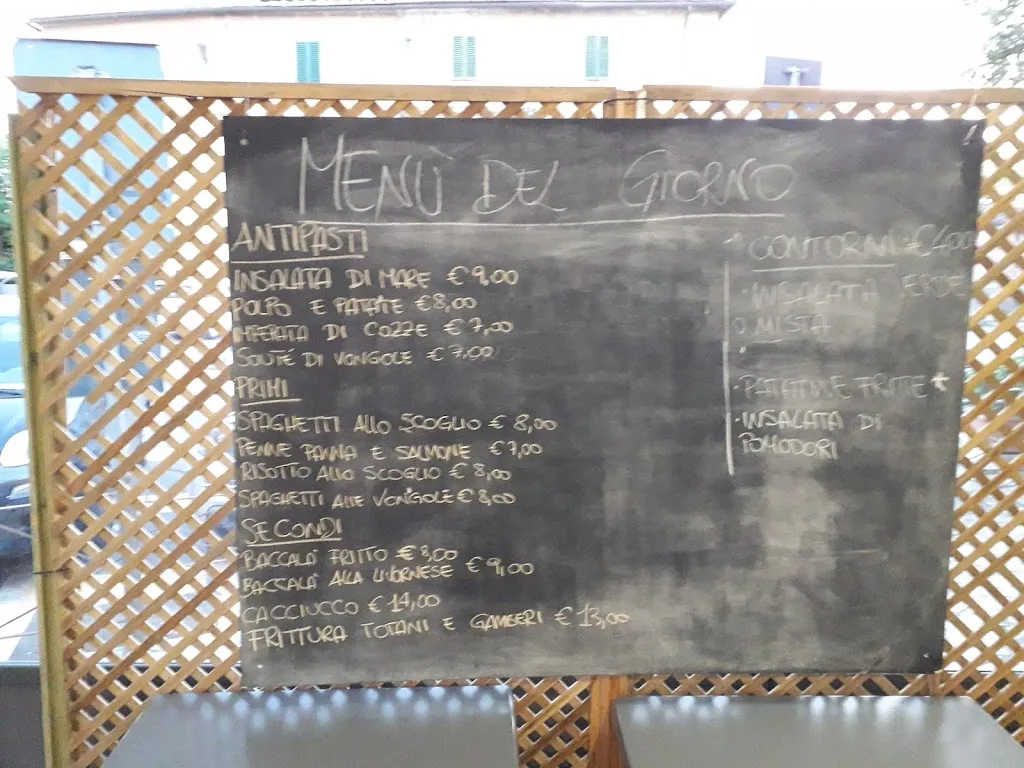 MENÙ DEL GIORNO
ANTIPASTI
INSALATA DI MARE € 9,00
POLPO E PATATE € 8,00
IMPEPATA DI COZZE € 7,00
SOUTÈ DI VONGOLE € 7,00
PRIMI
SPAGHETTI ALLO SCOGLIO € 8,00
PENNE PANNA E SALMONE € 7,00
RISOTTO ALLO SCOGLIO € 8,00
SPAGHETTI ALLE VONGOLE € 8,00
SECONDI
BACCALÀ FRITTO € 8,00
BACCALÀ ALLA LIVORNESE € 9,00
CACCIUCCO € 14,00
FRITTURA TOTANI E GAMBERI € 13,00
CONTORNI € 4,00
· INSALATA VERDE
O MISTA
· PATATINE FRITTE *
· INSALATA DI
POMODORI